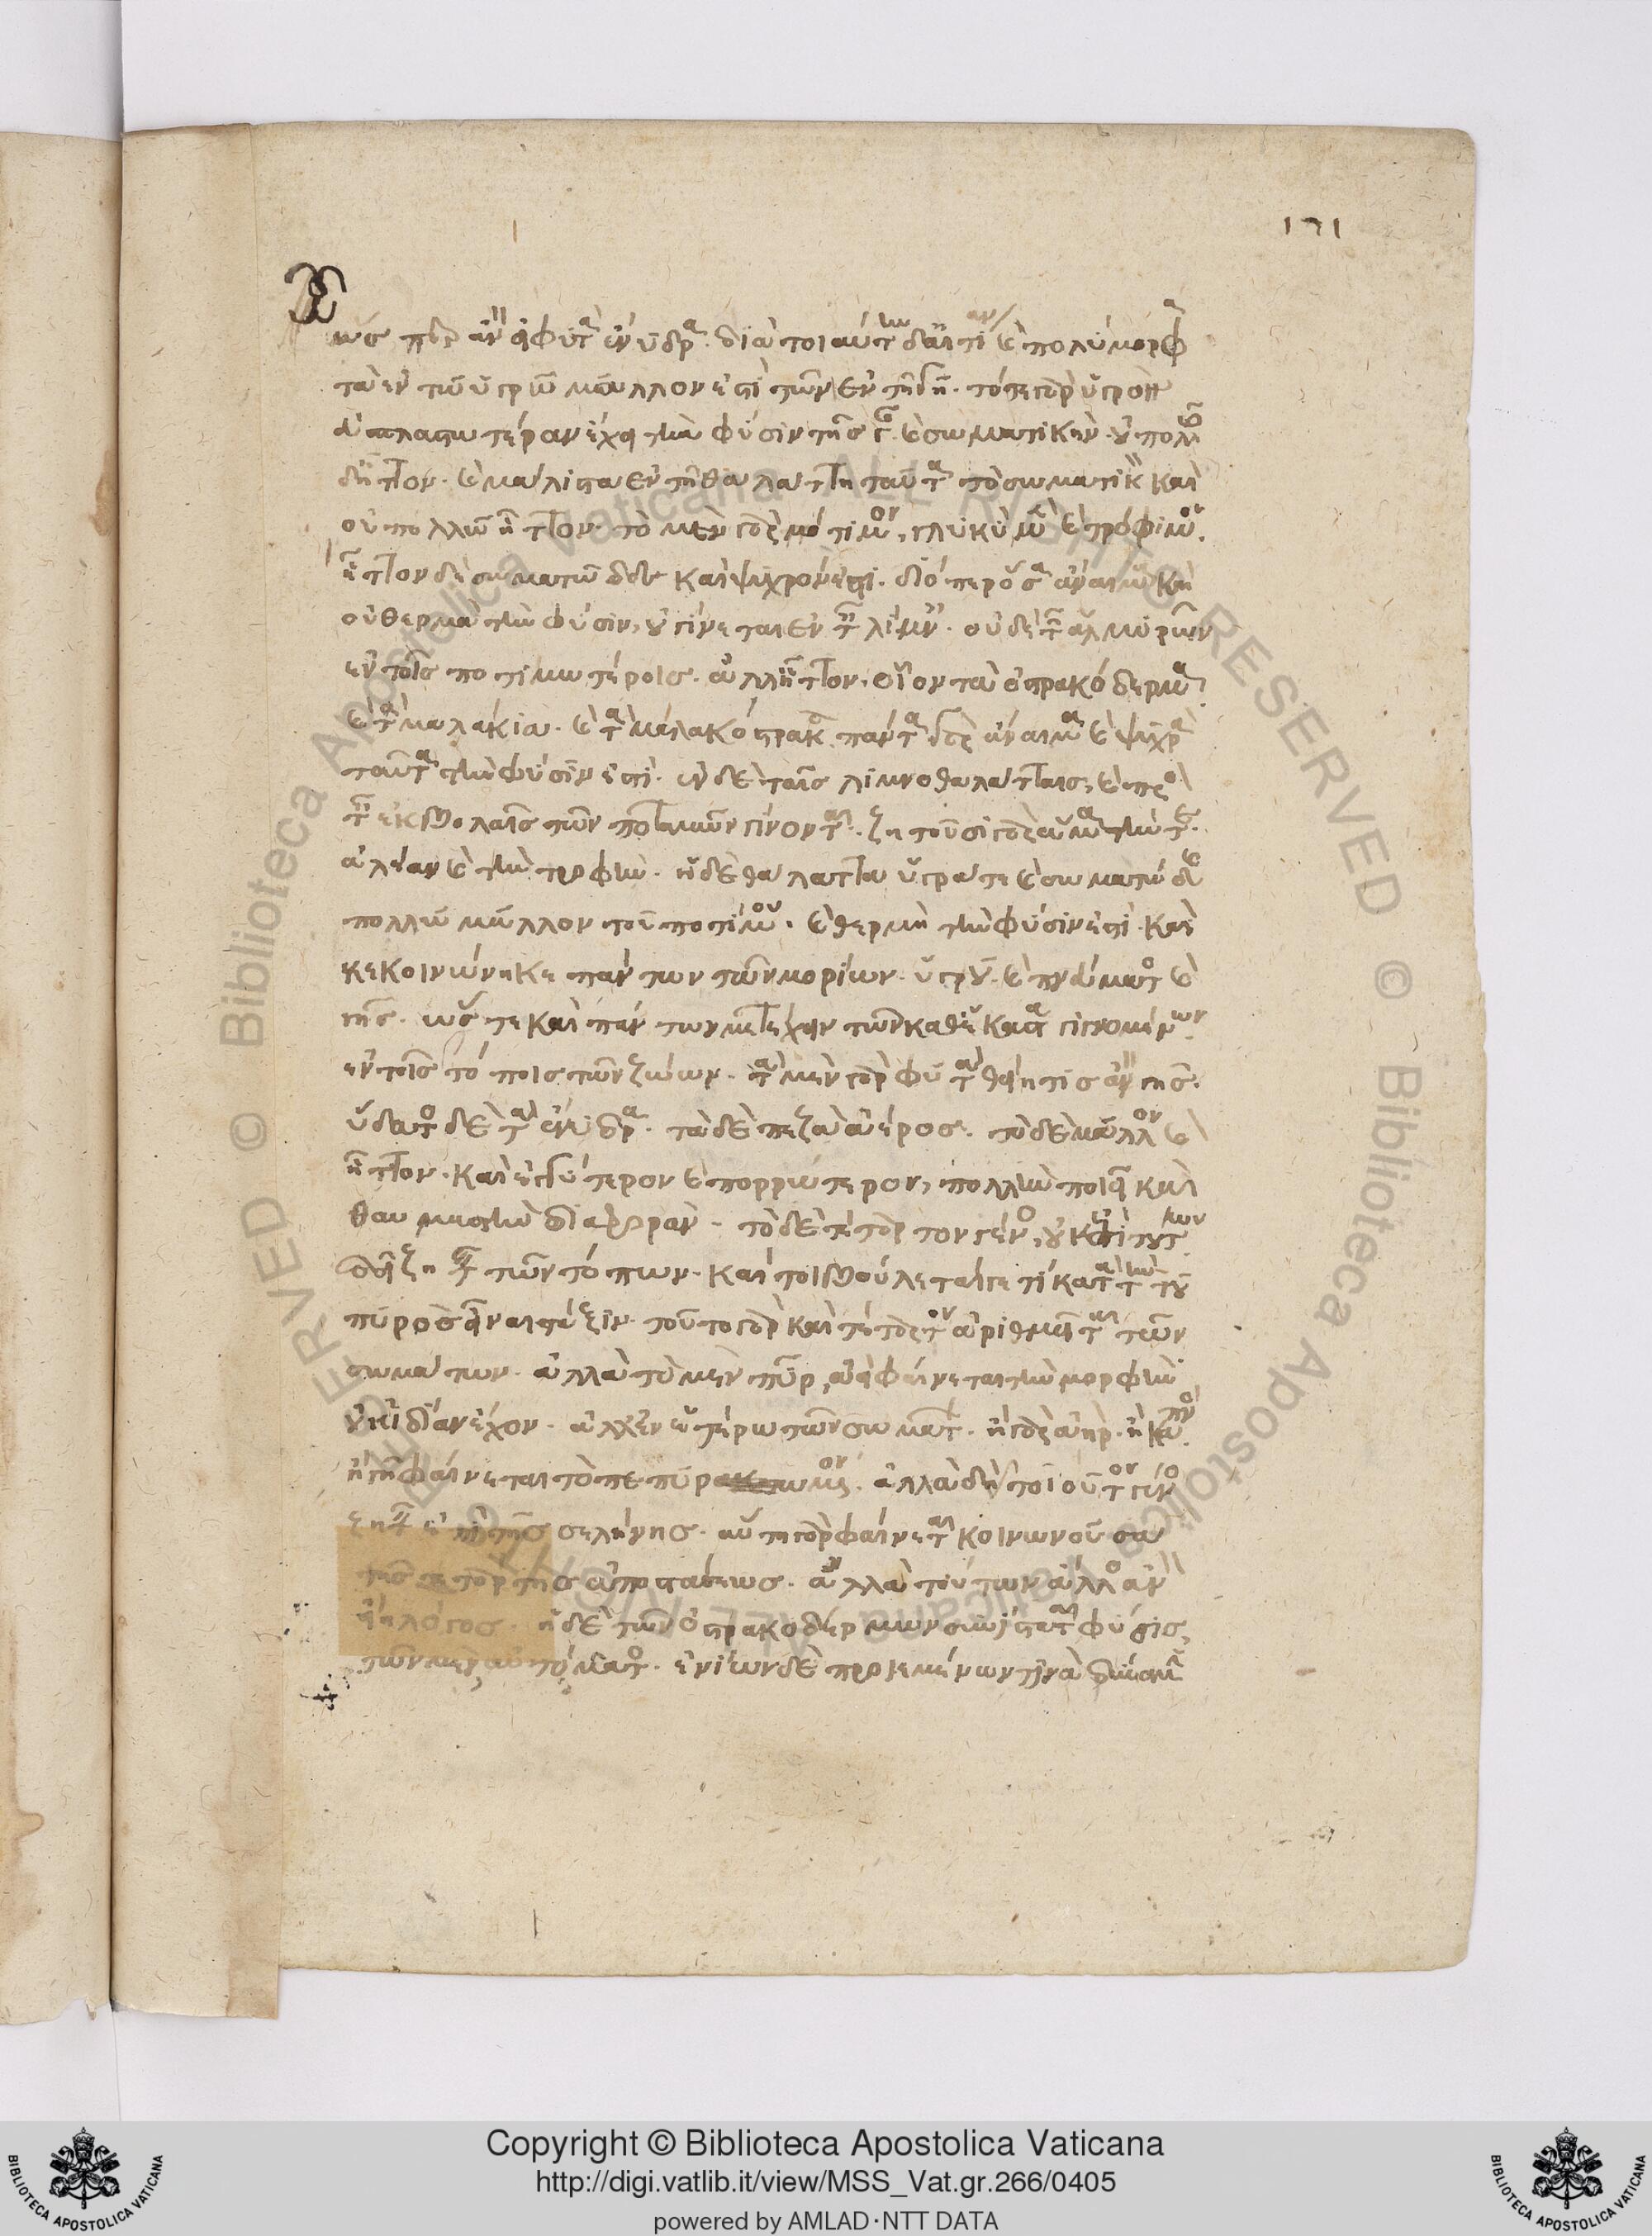 171
ὡς περ ἂν εἰ φυτὰ ἔνυδρα. διὰ τοιαύτην δ' αἰτίαν καὶ πολύμορφα
τὰ ἐν τῷ ὑγρῷ μᾶλλον ἐστὶ τῶν ἐν τῇ γῇ. τό τε γὰρ ὑγρὸν
εὐπλαστωτέραν ἔχει τὴν φύσιν τῆς γῆς καὶ σωματικὴν οὐ πολλῷ
δ' ἧττον. καὶ μάλιστα ἐν τῇ θαλάττῃ ταῦτα τὸ σωματικὴν καὶ
οὐ πολλῷ ἧττον. τὸ μὲν γὰρ πότιμον, γλυκὺ μὲν καὶ τρόφιμον.
ἧττον δὲ σωματῶδες καὶ ψυχρόν ἐστι. διόπερ ὅσα ἄναιμα καὶ
οὐ θερμὰ τὴν φύσιν, οὐ γίνεται ἐν ταῖς λίμναις. οὐδὲ τῶν ἁλμυρῶν
ἐν τοῖς ποτιμωτέροις. ἀλλ' ἧττον. οἷον τὰ ὀστρακόδερμα
καὶ τὰ μαλάκια. καὶ τὰ μαλακόστρακα. πάντα γὰρ ἄναιμα καὶ ψυχρὰ
ταῦτα τὴν φύσιν ἐστί. ἐν δὲ ταῖς λιμνοθαλάτταις, καὶ πρὸς
ταῖς ἐκβολαῖς τῶν ποταμῶν γίνονται. ζητοῦσι γὰρ ἅμα τήν τε
ἀλέαν καὶ τὴν τροφήν. ἡ δὲ θάλαττα ὑγρά τε καὶ σωματώδης
πολλῷ μᾶλλον τοῦ ποτίμου. καὶ θερμὴ τὴν φύσιν ἐστὶ. καὶ
κεκοινώνηκε πάντων τῶν μορίων. ὑγροῦ. καὶ πνεύματος καὶ
γῆς. ὥς τε καὶ πάντων μετέχειν τῶν καθ' ἕκαστα γιγνομένων
ἐν τοῖς τόποις τῶν ζώων. τὰ μὲν γὰρ φυτὰ θείη τις ἂν γῆς.
ὕδατος δὲ τὰ ἔνυδρα. τὰ δὲ πεζὰ ἀέρος. τὸ δὲ μᾶλλον καὶ
ἧττον. καὶ ἐγγύτερον καὶ πορρώτερον, πολλὴν ποιεῖ καὶ
θαυμαστὴν διαφοράν. τὸ δὲ τέταρτον γένος, οὐκ ἐπὶ τούτων
δεῖ ζητεῖν τῶν τόπων. καί τοι βούλεταί γέ τι κατὰ τὴν τοῦ
πυρὸς εἶναι τάξιν. τοῦτο γὰρ καὶ τέταρτον ἀριθμεῖται τῶν
σωμάτων. ἀλλὰ τὸ μὲν πῦρ, ἀεὶ φαίνεται τὴν μορφὴν
οὐκ ἰδίαν ἔχον. ἀλλ' ἐν ἑτέρῳ τῶν σωμάτων. ἢ γὰρ ἀὴρ. ἢ καπνὸς
ἢ γῆ φαίνεται τὸ πεπυρωμένον. ἀλλὰ δεῖ τοιοῦτον γένος
ζητεῖν ἐπὶ τῆς σελήνης. αὕτη γὰρ φαίνεται κοινωνοῦσα
τῆς τετάρτης ἀποστάσεως. ἀλλὰ τούτων ἄλλος ἂν
εἴη λόγος. ἡ δὲ τῶν ὀστρακοδέρμων συνίσταται φύσις,
τῶν μὲν αὐτομάτως. ἐνίων δὲ προϊεμένων τινὰ δύναμιν
Copyright © Biblioteca Apostolica Vaticana
http://digi.vatlib.it/view/MSS_Vat.gr.266/0405
powered by AMLAD·NTT DATA